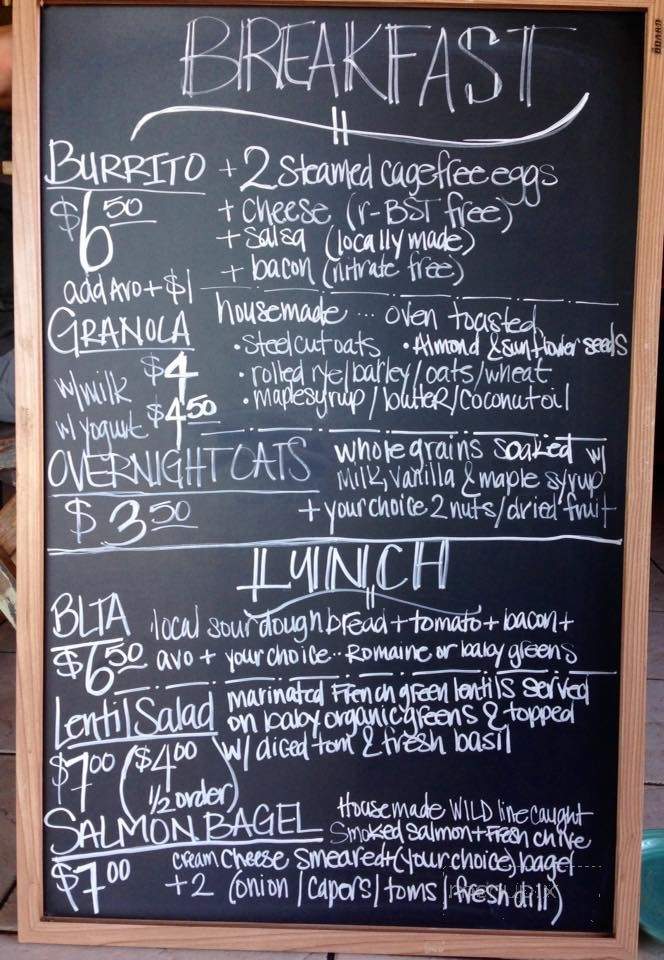 BREAKFAST
BURRITO + 2 Steamed cage free eggs
$6.50 + cheese (r-BST free)
+ salsa (locally made)
+ bacon (nitrate free)
add Avo + $1
GRANOLA housemade ... oven toasted
• Steel cut oats • Almond & sunflower seeds
w/milk $4 • rolled rye/barley/oats/wheat
w/yogurt $4.50 • maple syrup/butter/coconut oil
OVERNIGHT OATS whole grains soaked w/
Milk, vanilla & maple syrup
$3.50 + your choice 2 nuts/dried fruit
LUNCH
BLTA local sourdough bread + tomato + bacon +
$6.50 avo + your choice.. Romaine or baby greens
Lentil Salad marinated French green lentils served
on baby organic greens & topped
w/ diced tom & fresh basil
$7.00 ($4.00
1/2 order)
SALMON BAGEL Housemade WILD line caught
Smoked salmon + Fresh chive
cream cheese smeared + (your choice) bagel
$7.00 +2 (onion/capers/toms/fresh dill)